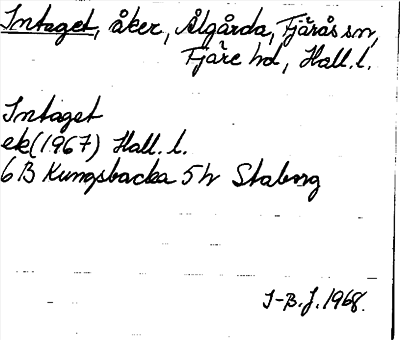 Intaget, åker, Ålgårda, Fjärås sn,
Fjäre hd, Hall. l.
Intaget
ek (1967) Hall. l.
6 B Kungsbacka 5 h Staborg
I-B. J. 1968.